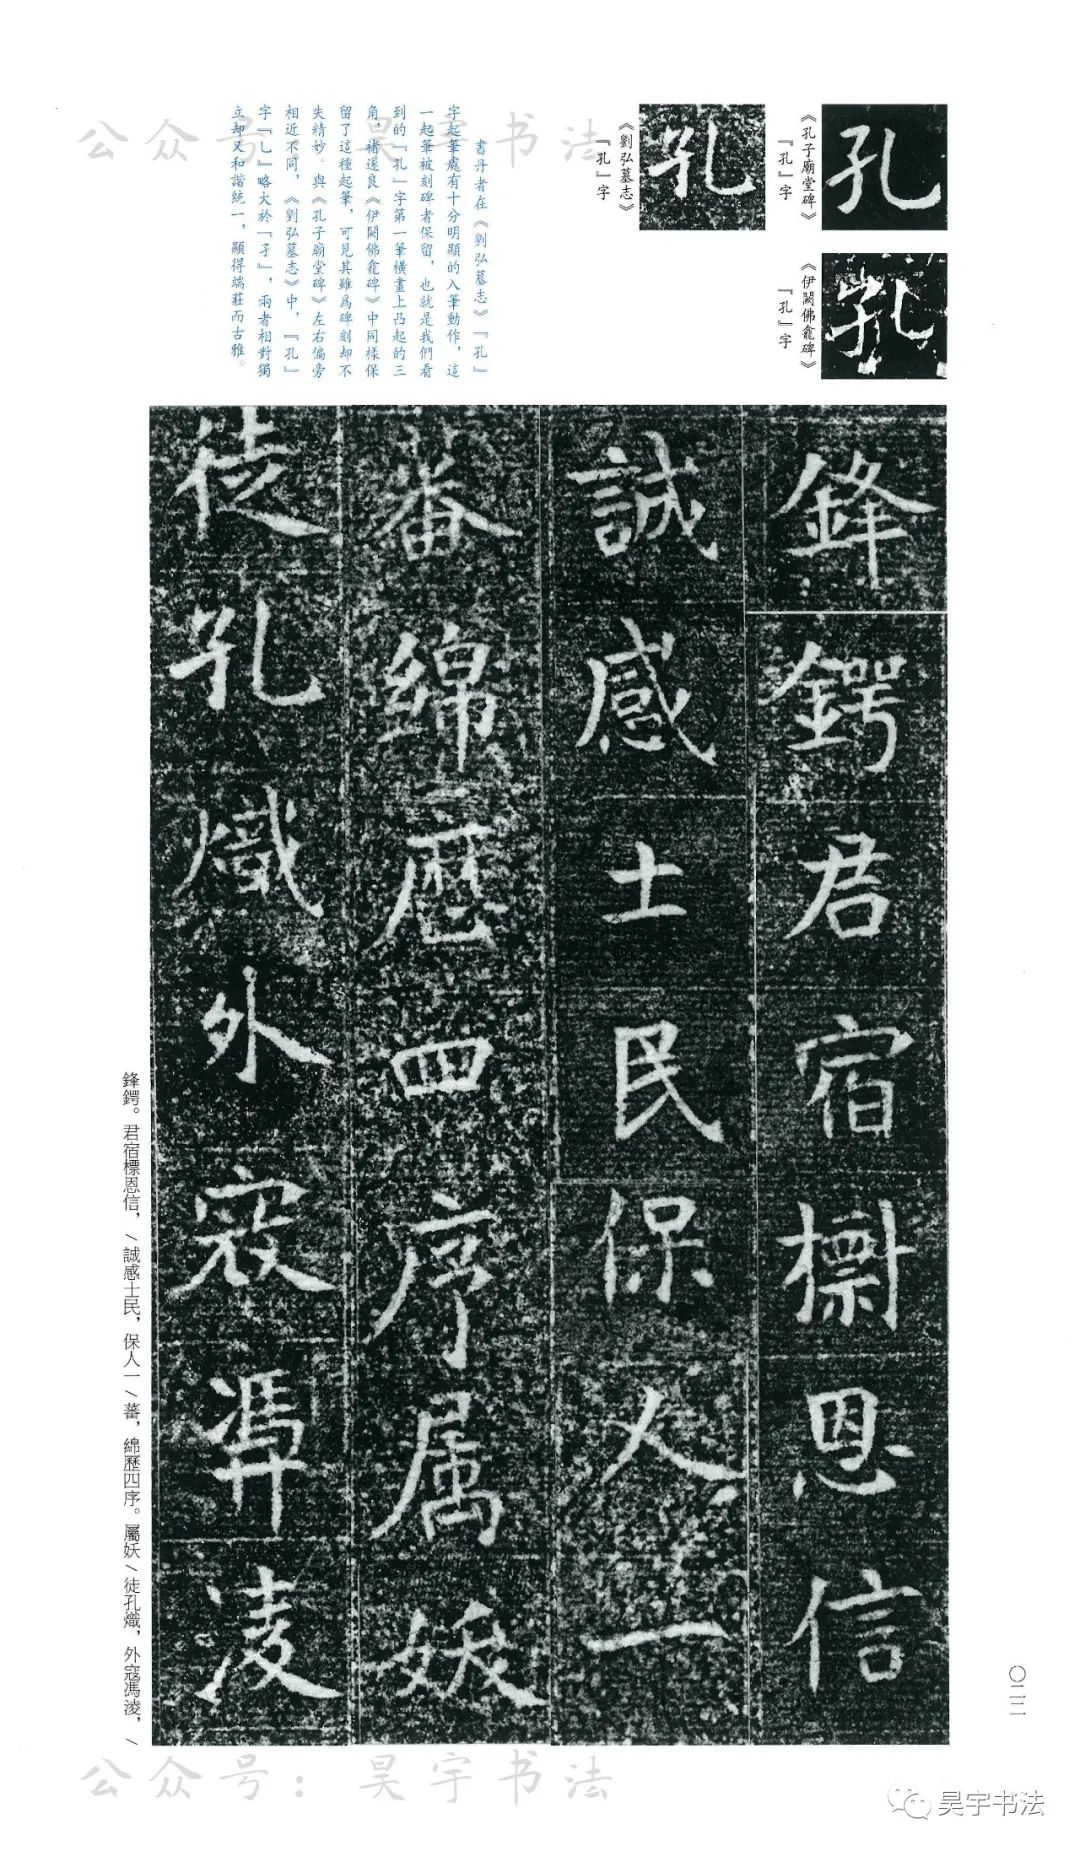 公众号：昊宇书法
《孔子廟堂碑》
『孔』字
《伊闕佛龕碑》
『孔』字
《劉弘墓志》
『孔』字
書丹者在《劉弘墓志》『孔』
字起筆處有十分明顯的入筆動作，這
一起筆被刻碑者保留，也就是我們看
到的『孔』字第一筆橫畫上凸起的三
角，褚遂良《伊闕佛龕碑》中同樣保
留了這種起筆，可見其雖爲碑刻却不
失精妙。與《孔子廟堂碑》左右偏旁
相近不同，《劉弘墓志》中，『孔』
字『乚』略大於『孑』，兩者相對獨
立却又和諧統一，顯得端莊而古雅。
孔
孔
孔
鋒鍔君宿標恩信
誠感士民保人一
蕃綿歷四序属妖
徒孔熾外寇馮凌
鋒鍔。君宿標恩信，/誠感士民，保人一/蕃，綿歷四序。屬妖/徒孔熾，外寇馮淩，/
〇二二
公众号：昊宇书法
昊宇书法